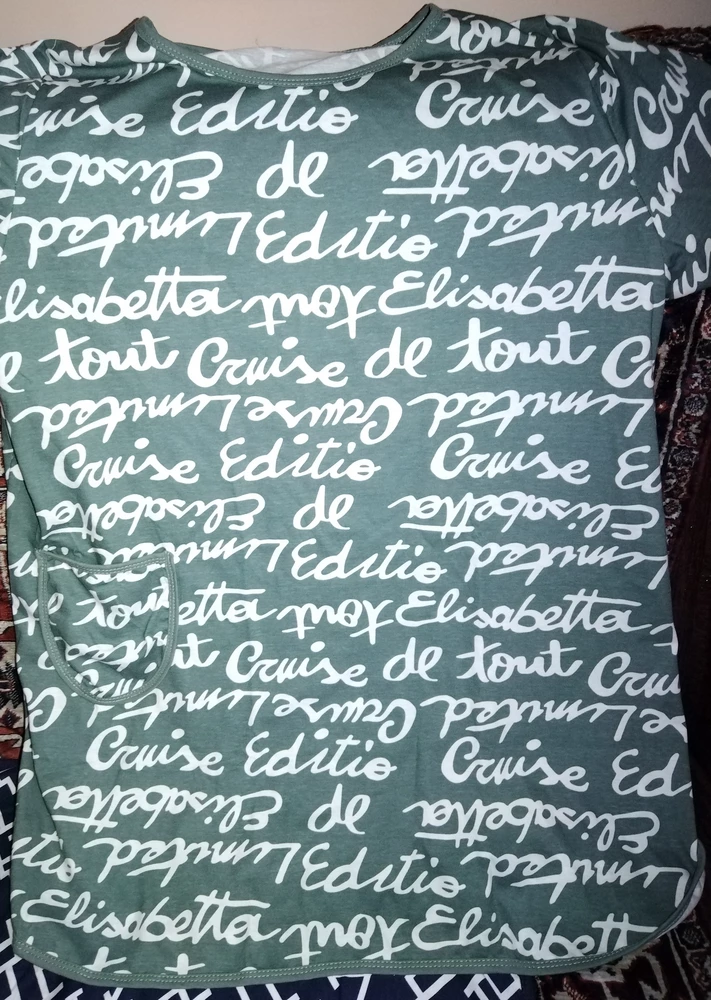 Cruise Editio Cruise
Elisabetta de Elisabetta
Limited Editio Limited
Elisabetta tout Elisabetta
de tout Cruise de tout
Limited Cruise Limited
Cruise Editio Cruise
Elisabetta de Elisabetta
Limited Editio Limited
tout etta tout Elisabetta
ut Cruise de tout Crui
Limited Cruise Limited
Cruise Editio Cruise Ed
Elisabetta de Elisabetta
tio Limited Editio Limited
Elisabetta tout Elisabett